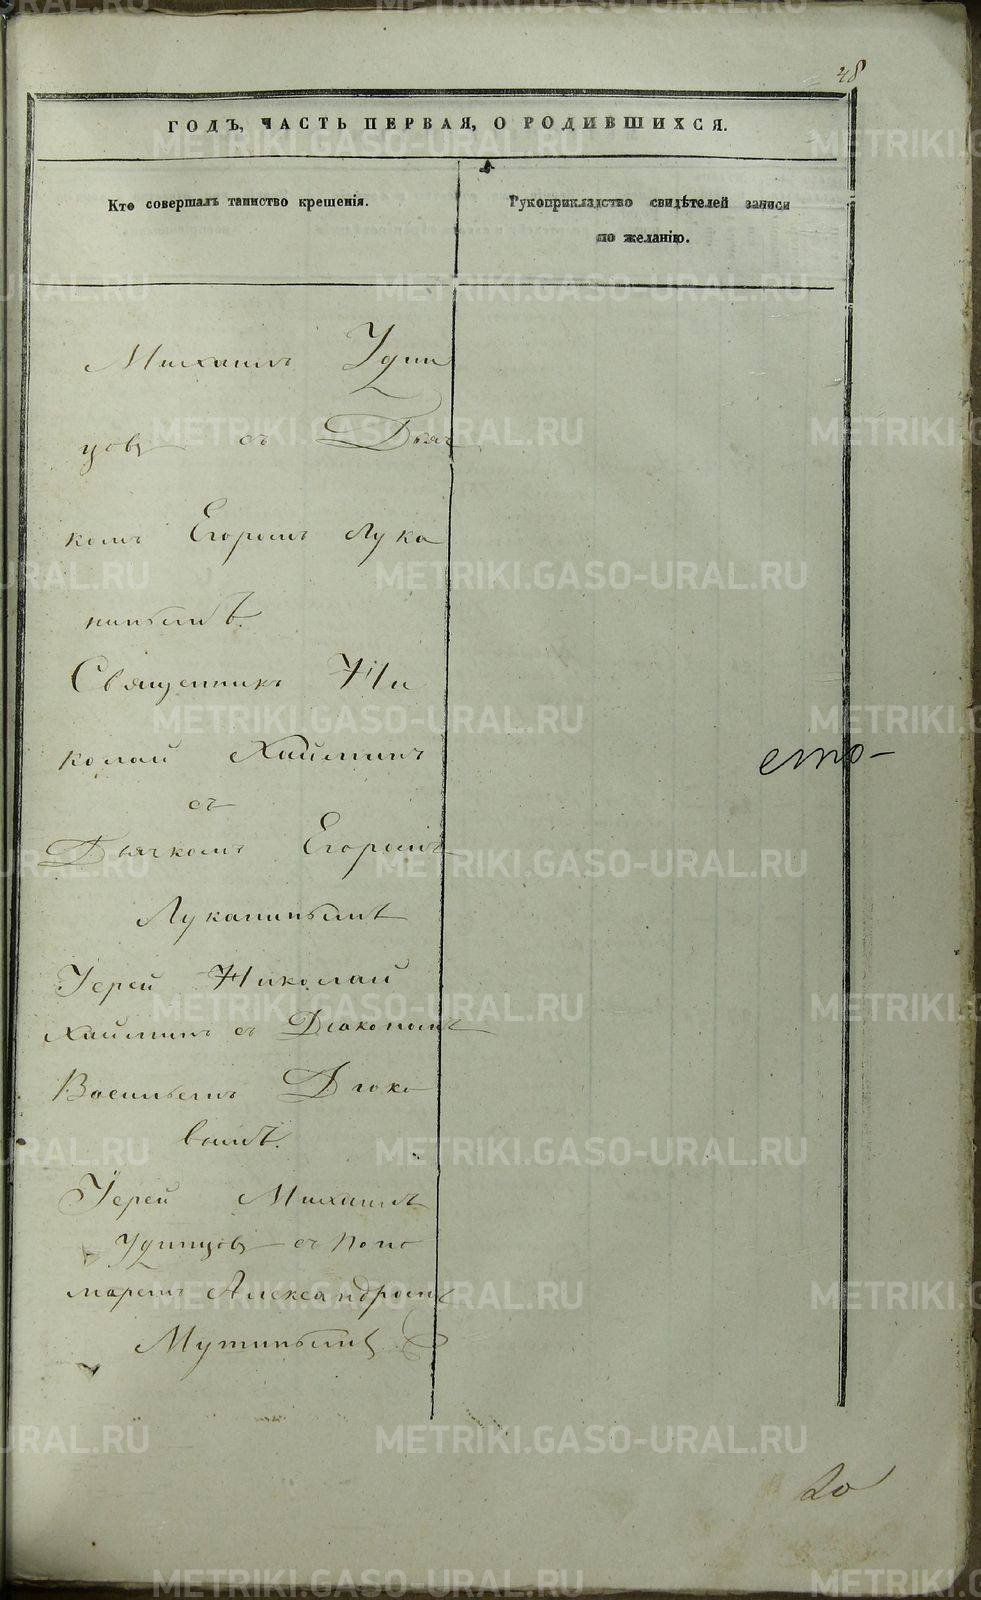 48
ГОДЪ, ЧАСТЬ ПЕРВАЯ, О РОДИВШИХСЯ.
Кто совершалъ таинство крещенія.
Рукоприкладство свидѣтелей записи
по желанію.
Михаилъ Удин
цовъ съ Дьяч
комъ Егоромъ Лука
нинымъ.
Священникъ Ни
колай Хаймин
съ
Дьячкомъ Егоромъ
Луканинымъ
Іерей Николай
съ Діакономъ
Васильемъ Дья­ко
вымъ.
Іерей Михаилъ
Удинцовъ съ Поно
маремъ Александромъ
Мутинымъ
сто-
20
METRIKI.GASO-URAL.RU